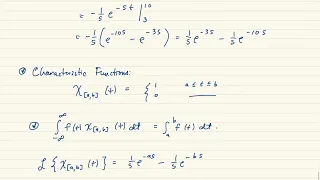 = -1/5 e^{-st} |_3^{10}
= -1/5 ( e^{-10s} - e^{-3s} ) = 1/5 e^{-3s} - 1/5 e^{-10s}
Characteristic Functions:
χ_{[a,b]}(t) = { 1 a≤t≤b
0
∫_{-∞}^{∞} f(t) χ_{[a,b]}(t) dt = ∫_a^b f(t) dt.
ℒ{ χ_{[a,b]}(t) } = 1/5 e^{-as} - 1/5 e^{-bs}